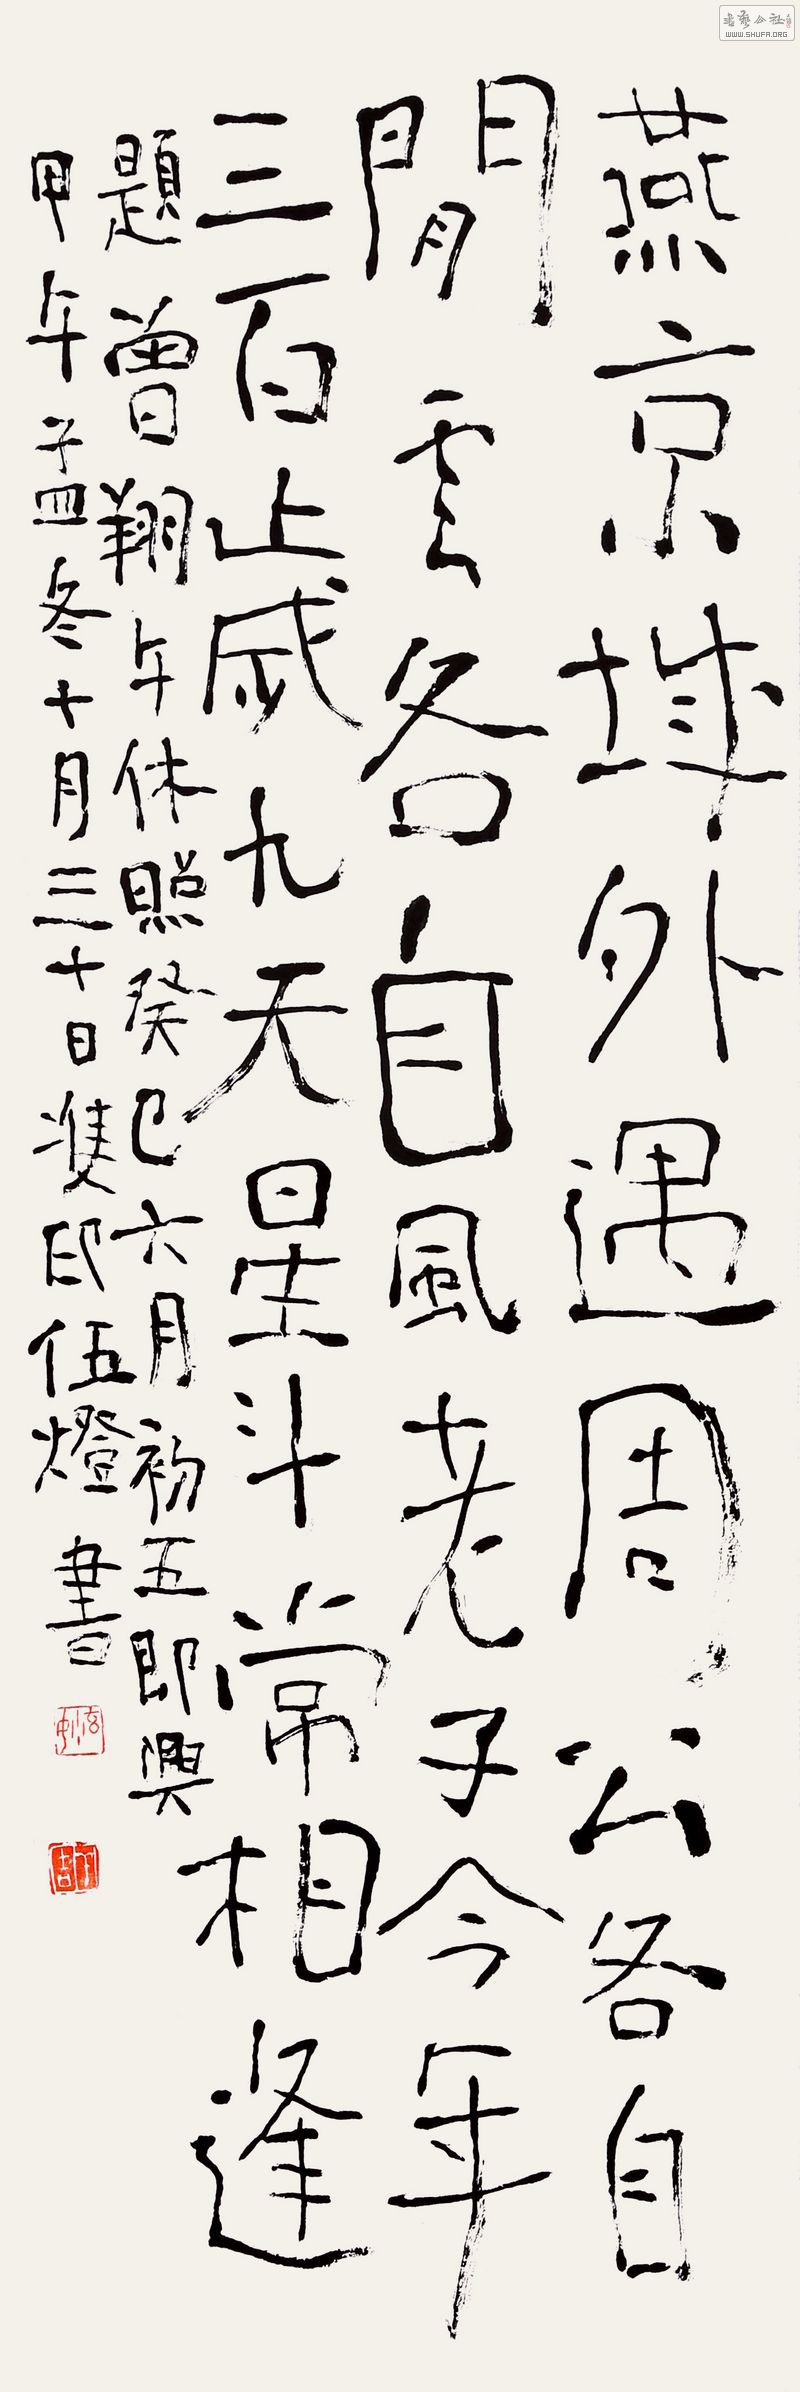 燕京城外遇周公各自
閒雲各自風老子今年
三百歲九天星斗常相逢
題曾翔午休照癸巳六月初五即興
甲午孟冬十月三十日雙印伍燈書
書藝公社
WWW.SHUFA.ORG